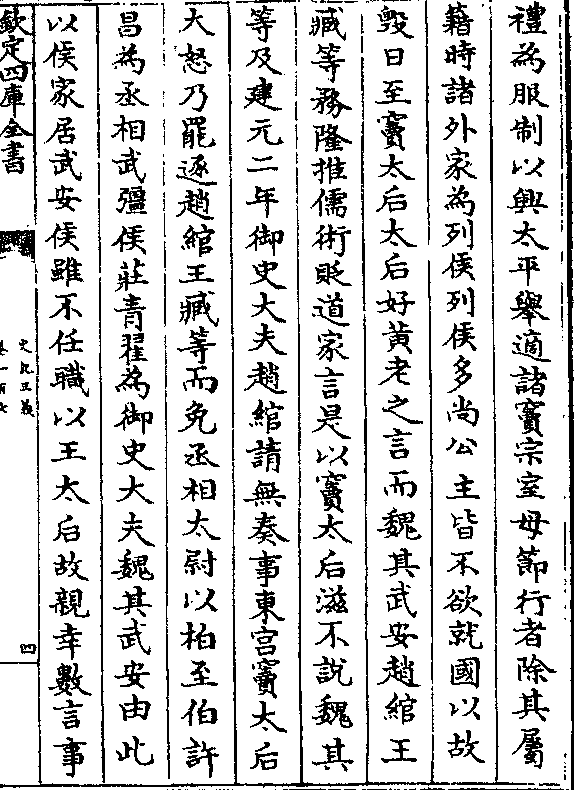 禮為服制以興太平舉適諸竇宗室毋節行者除其屬
籍時諸外家為列侯列侯多尚公主皆不欲就國以故
毁日至竇太后太后好黄老之言而魏其武安趙綰王
臧等務隆推儒術貶道家言是以竇太后滋不說魏其
等及建元二年御史大夫趙綰請無奏事東宫竇太后
大怒乃罷逐趙綰王臧等而免丞相太尉以柏至侯許
昌為丞相武彊侯莊青翟為御史大夫魏其武安由此
以侯家居武安侯雖不任職以王太后故親幸數言事
欽定四庫全書
史記正義
卷一百七
四